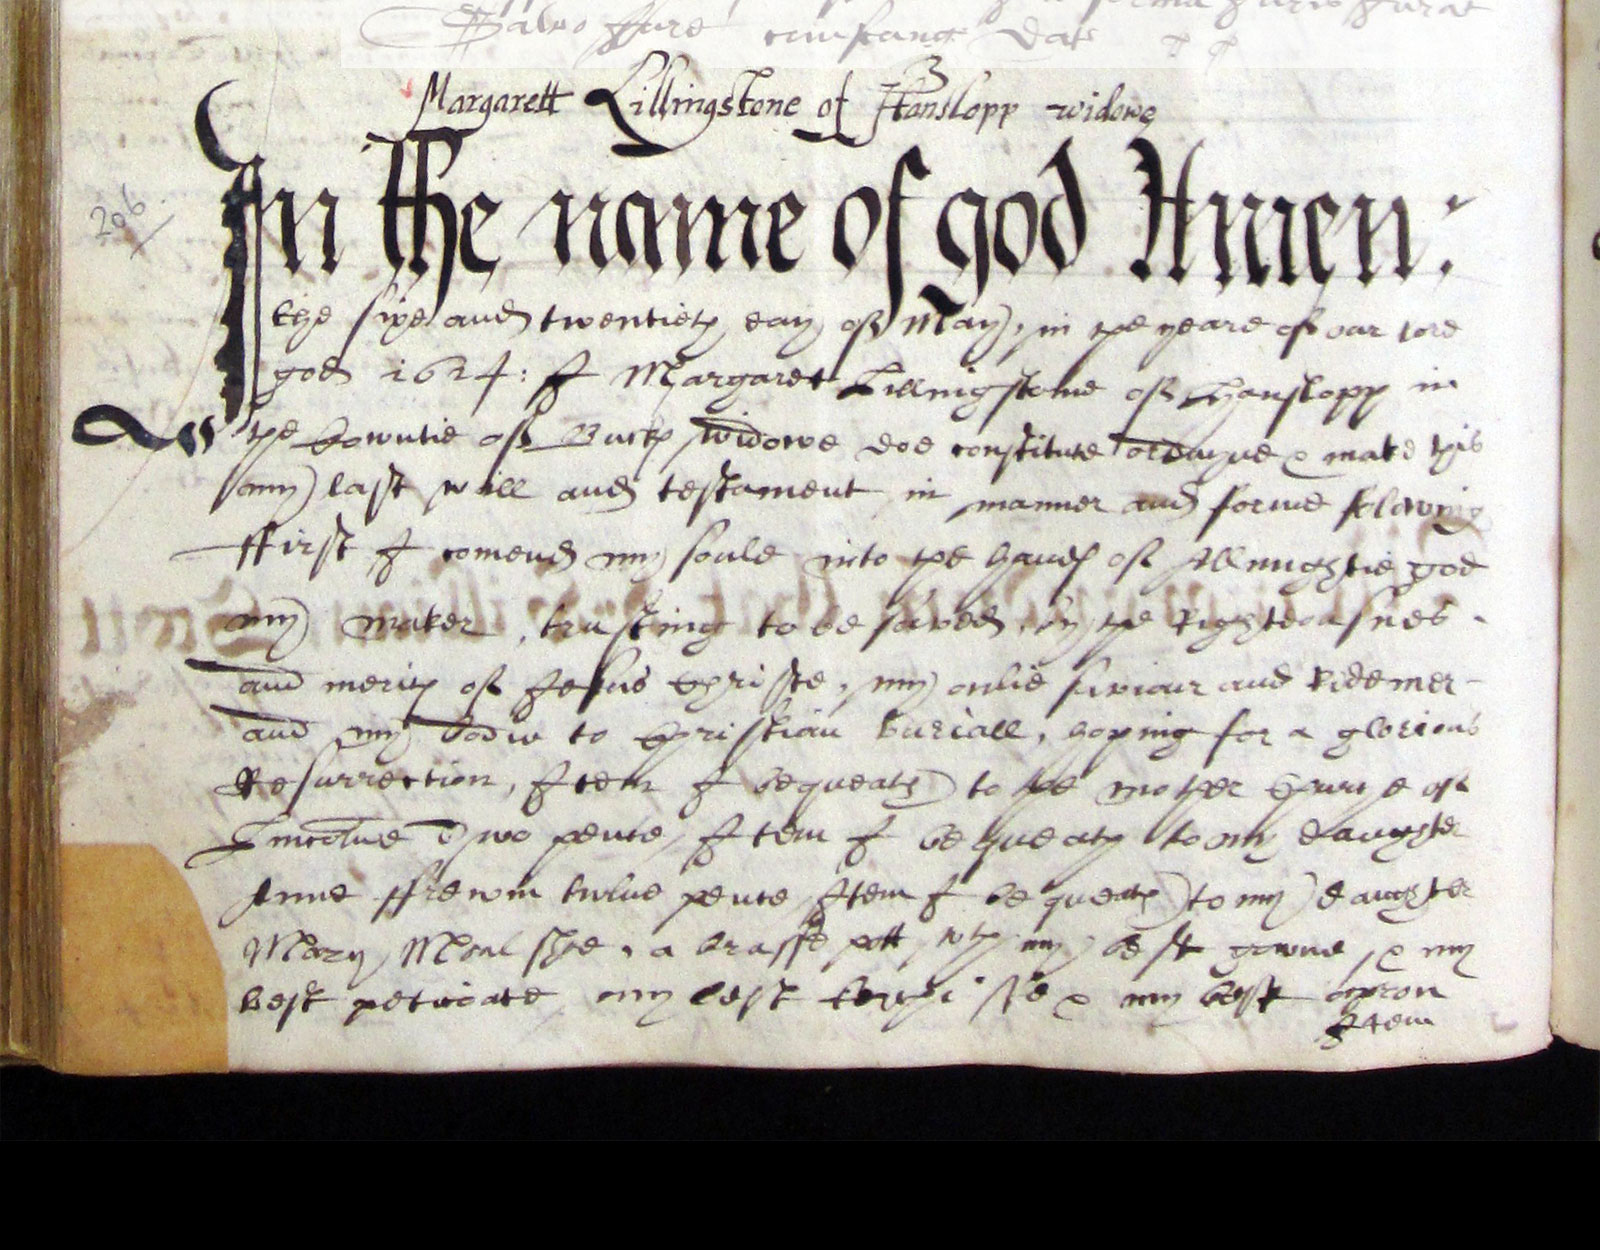 Salvo Jure cuiuscunque Dat
Margarett Lillingstone of Hanslopp widowe
206
In the name of god Amen:
the sixe and twentieth day off May, in the yeare of our lord
god 1624: I Margaret Lillingstone off Hanslopp in
the Cowntie off Buck widowe doe constitute ordayne & make this
my last will and testament in manner and forme folowing
ffirst I comend my soule into the hands of Allmightie god
my maker, trusting to be saved, by the Righteousnes
and merits of Jesus Christe, my onlie saviour and Redemer
and my bodie to Christian buriall, hoping for a glorious
Resurrection, Item I bequeath to the mother Church of
Lincolne Two pence, Item I bequeath to my daughter
Anne ffrewin twlve pence, Item I bequeath to my daughter
Mary, a brasse pott, wth my best gowne, & my
best peticoate, my best & my best apron
Item